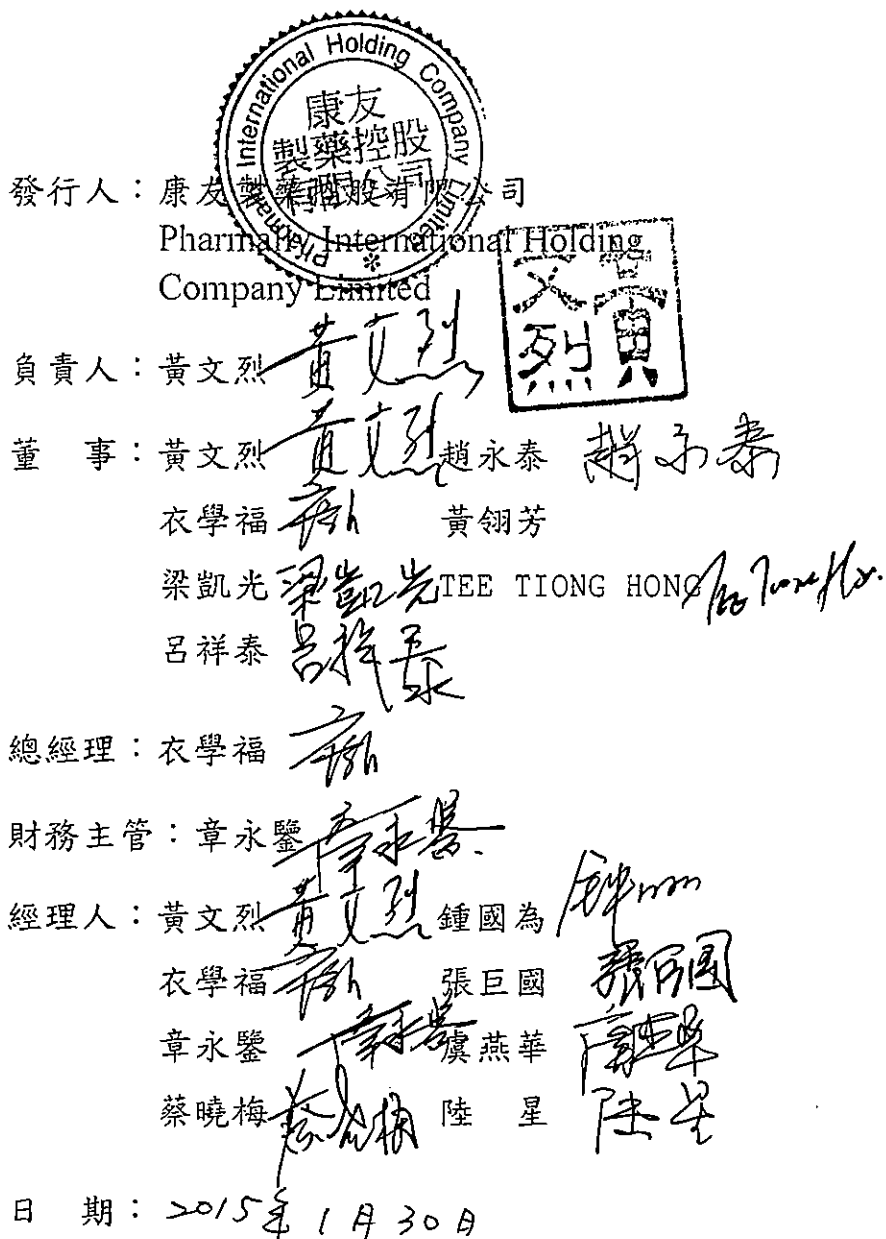 Pharmally International Holding Company Limited
康友
製藥控股
有限公司
發行人：康友製藥控股有限公司
Pharmally International Holding
Company Limited
黃文烈
負責人：黃文烈 黃文烈
董　事：黃文烈 黃文烈 趙永泰 趙永泰
衣學福 黃翎芳
梁凱光 梁凱光 TEE TIONG HONG
呂祥泰 呂祥泰
總經理：衣學福
財務主管：章永鑒 章永鑒
經理人：黃文烈 黃文烈 鍾國為
衣學福 張巨國 張巨國
章永鑒 章永鑒 虞燕華
蔡曉梅 蔡曉梅 陸　星 陆星
日　期：2015年1月30日